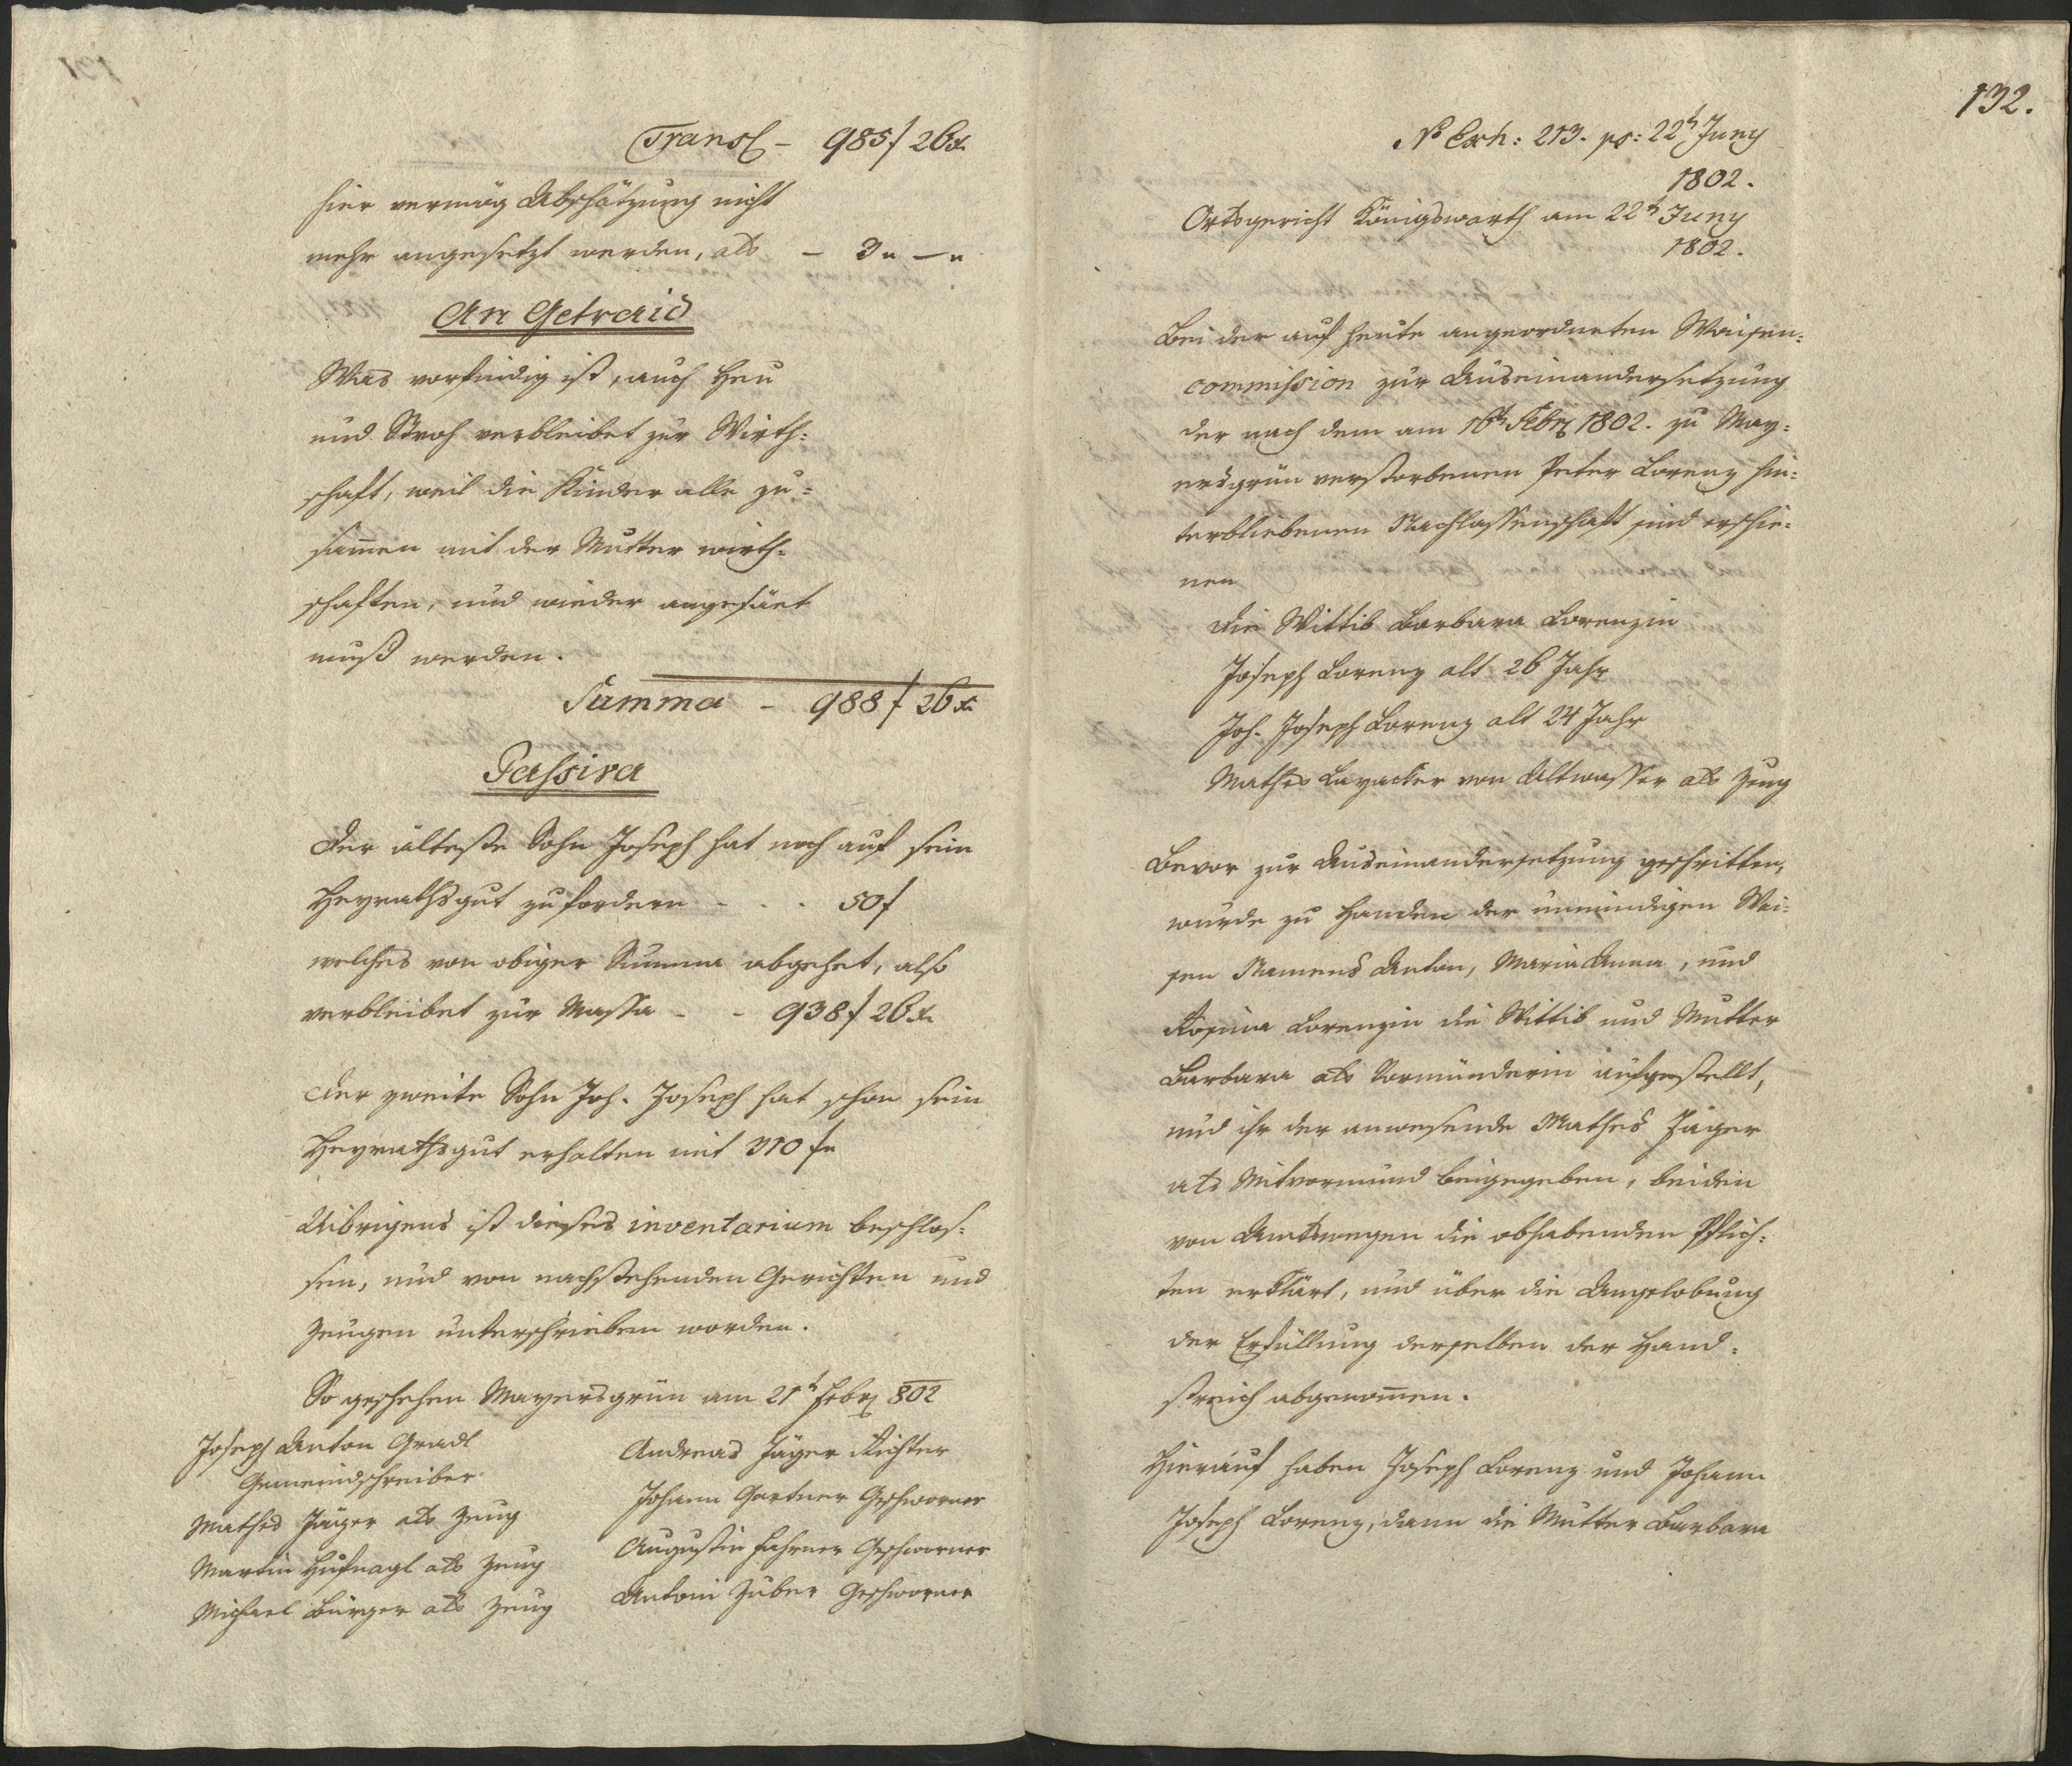 Transl – 985 f 26 x.
hier vermög Abschätzung nicht
mehr angesetzt werden, als – 3 " — "
An Getraid
Was vorfindig ist, auch Heu
und Stroh verbleibet zur Wirth=
schaft, weil die Kinder alle zu=
sam̄en mit der Mutter wirth=
schaften, und wieder angesäet
muß werden.
Summa – 988 f 26 x
Passiva
Der älteste Sohn Joseph hat noch auf sein
Heyrathsgut zu fordern - - - 50 f
welches von obiger Summa abgehet, also
verbleibet zur Massa - - 938 f 26 x.
Der zweite Sohn Joh. Joseph hat schon sein
Heyrathsgut erhalten mit 310 f
Uibrigens ist dieses inventarium beschlos=
sen, und von nachstehenden Gerichten und
Zeugen unterschrieben worden.
So geschehen Mayersgrün am 21t Febr 802
Joseph Anton Gradl
Gemeindschreiber
Mathes Jäger als Zeug
Martin Hufnagl als Zeug
Michael Bürger als Zeug
Andreas Jäger Richter
Johann Gartner Geschworner
Augustin Fahrner Geschworner
Antoni Zuber Geschworner
132.
No Exh: 213. ps: 22t Juny
1802.
Ortsgericht Königswarth am 22t Juny
1802.
Bei der auf heute angeordneten Waisen=
commission zur Auseinandersetzung
der nach dem am 16t Febr 1802. zu May=
ersgrün verstorbenen Peter Lorenz hin=
terbliebenen Nachlassenschaft sind erschie=
nen
die Wittib Barbara Lorenzin
Joseph Lorenz alt 26 Jahr
Joh. Joseph Lorenz alt 24 Jahr
Mathes von Altwasser als Zeug
Bevor zur Auseinandersetzung geschritten,
wurde zu Handen der unmündigen Wai=
sen Namens Anton, Maria Anna, und
Rosina Lorenzin die Wittib und Mutter
Barbara als Vormünderin aufgestellt,
und ihr der anwesende Mathes Jäger
als Mitvormund beigegeben, beiden
von Amtswegen die obhabenden Pflich=
ten erklärt, und über die Angelobung
der Erfüllung derselben der Hand=
streich abgenom̄en.
Hierauf haben Joseph Lorenz und Johann
Joseph Lorenz, dann die Mutter Barbara